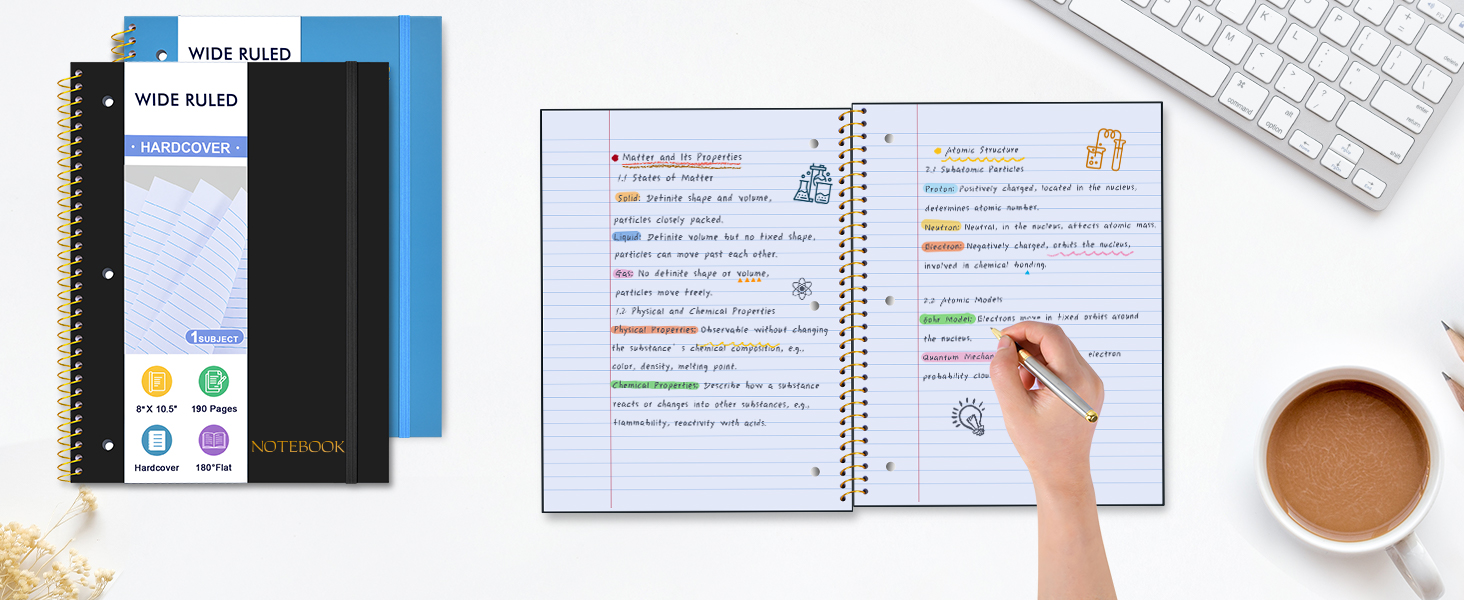 WIDE RULED
WIDE RULED
· HARDCOVER ·
1 SUBJECT
8" X 10.5"
190 Pages
Hardcover
180°Flat
NOTEBOOK
Matter and Its Properties
1.1 States of Matter
Solid: Definite shape and volume,
particles closely packed.
Liquid: Definite volume but no fixed shape,
particles can move past each other.
Gas: No definite shape or volume,
particles move freely.
1.2 Physical and Chemical Properties
Physical Properties: Observable without changing
the substance's chemical composition, e.g.,
color, density, melting point.
Chemical Properties: Describe how a substance
reacts or changes into other substances, e.g.,
flammability, reactivity with acids.
Atomic Structure
2.1 Subatomic Particles
Proton: Positively charged, located in the nucleus,
determines atomic number.
Neutron: Neutral, in the nucleus, affects atomic mass.
Electron: Negatively charged, orbits the nucleus,
involved in chemical bonding.
2.2 Atomic Models
Bohr Model: Electrons move in fixed orbits around
the nucleus.
Quantum electron
probability
N M K L
command
option
alt
delete
enter
return
shift